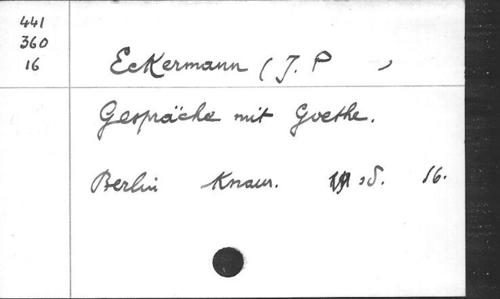 441
360
16
Eckermann (J. P )
Gespräche mit Goethe.
Berlin Knaur. 16.